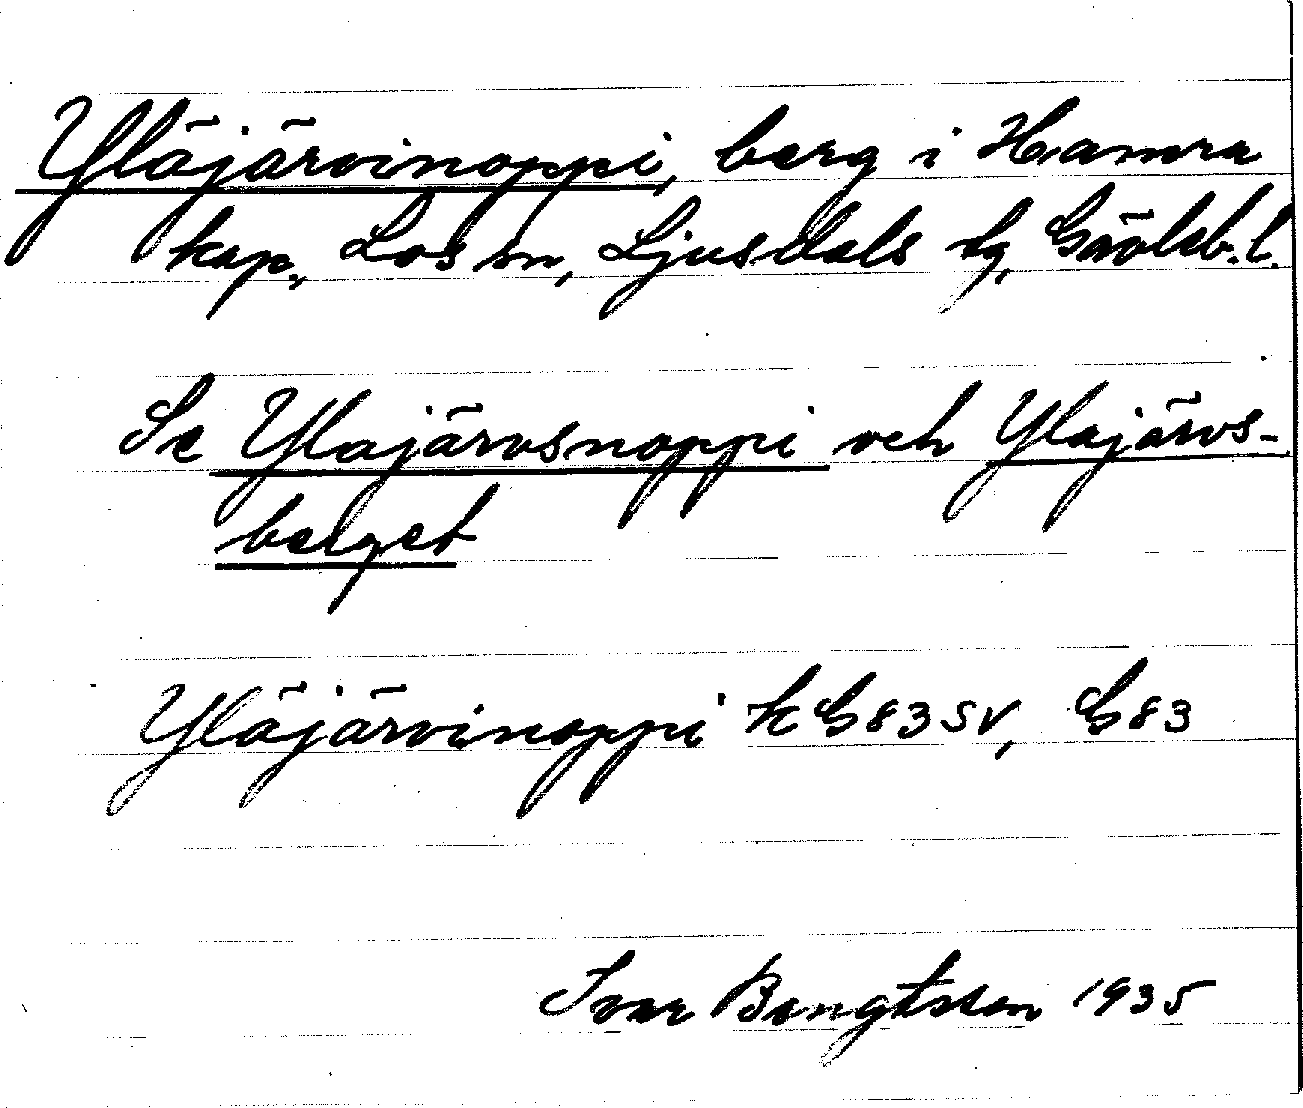 Yläjärvinoppi, berg i Hamra
kap., Los sn, Ljusdals tg, Gävleb. l.
Se Ylajärvsnoppi och Ylajärvs-
berget
Yläjärvinoppi kG83SV, G83
Ivar Bengtsson 1935